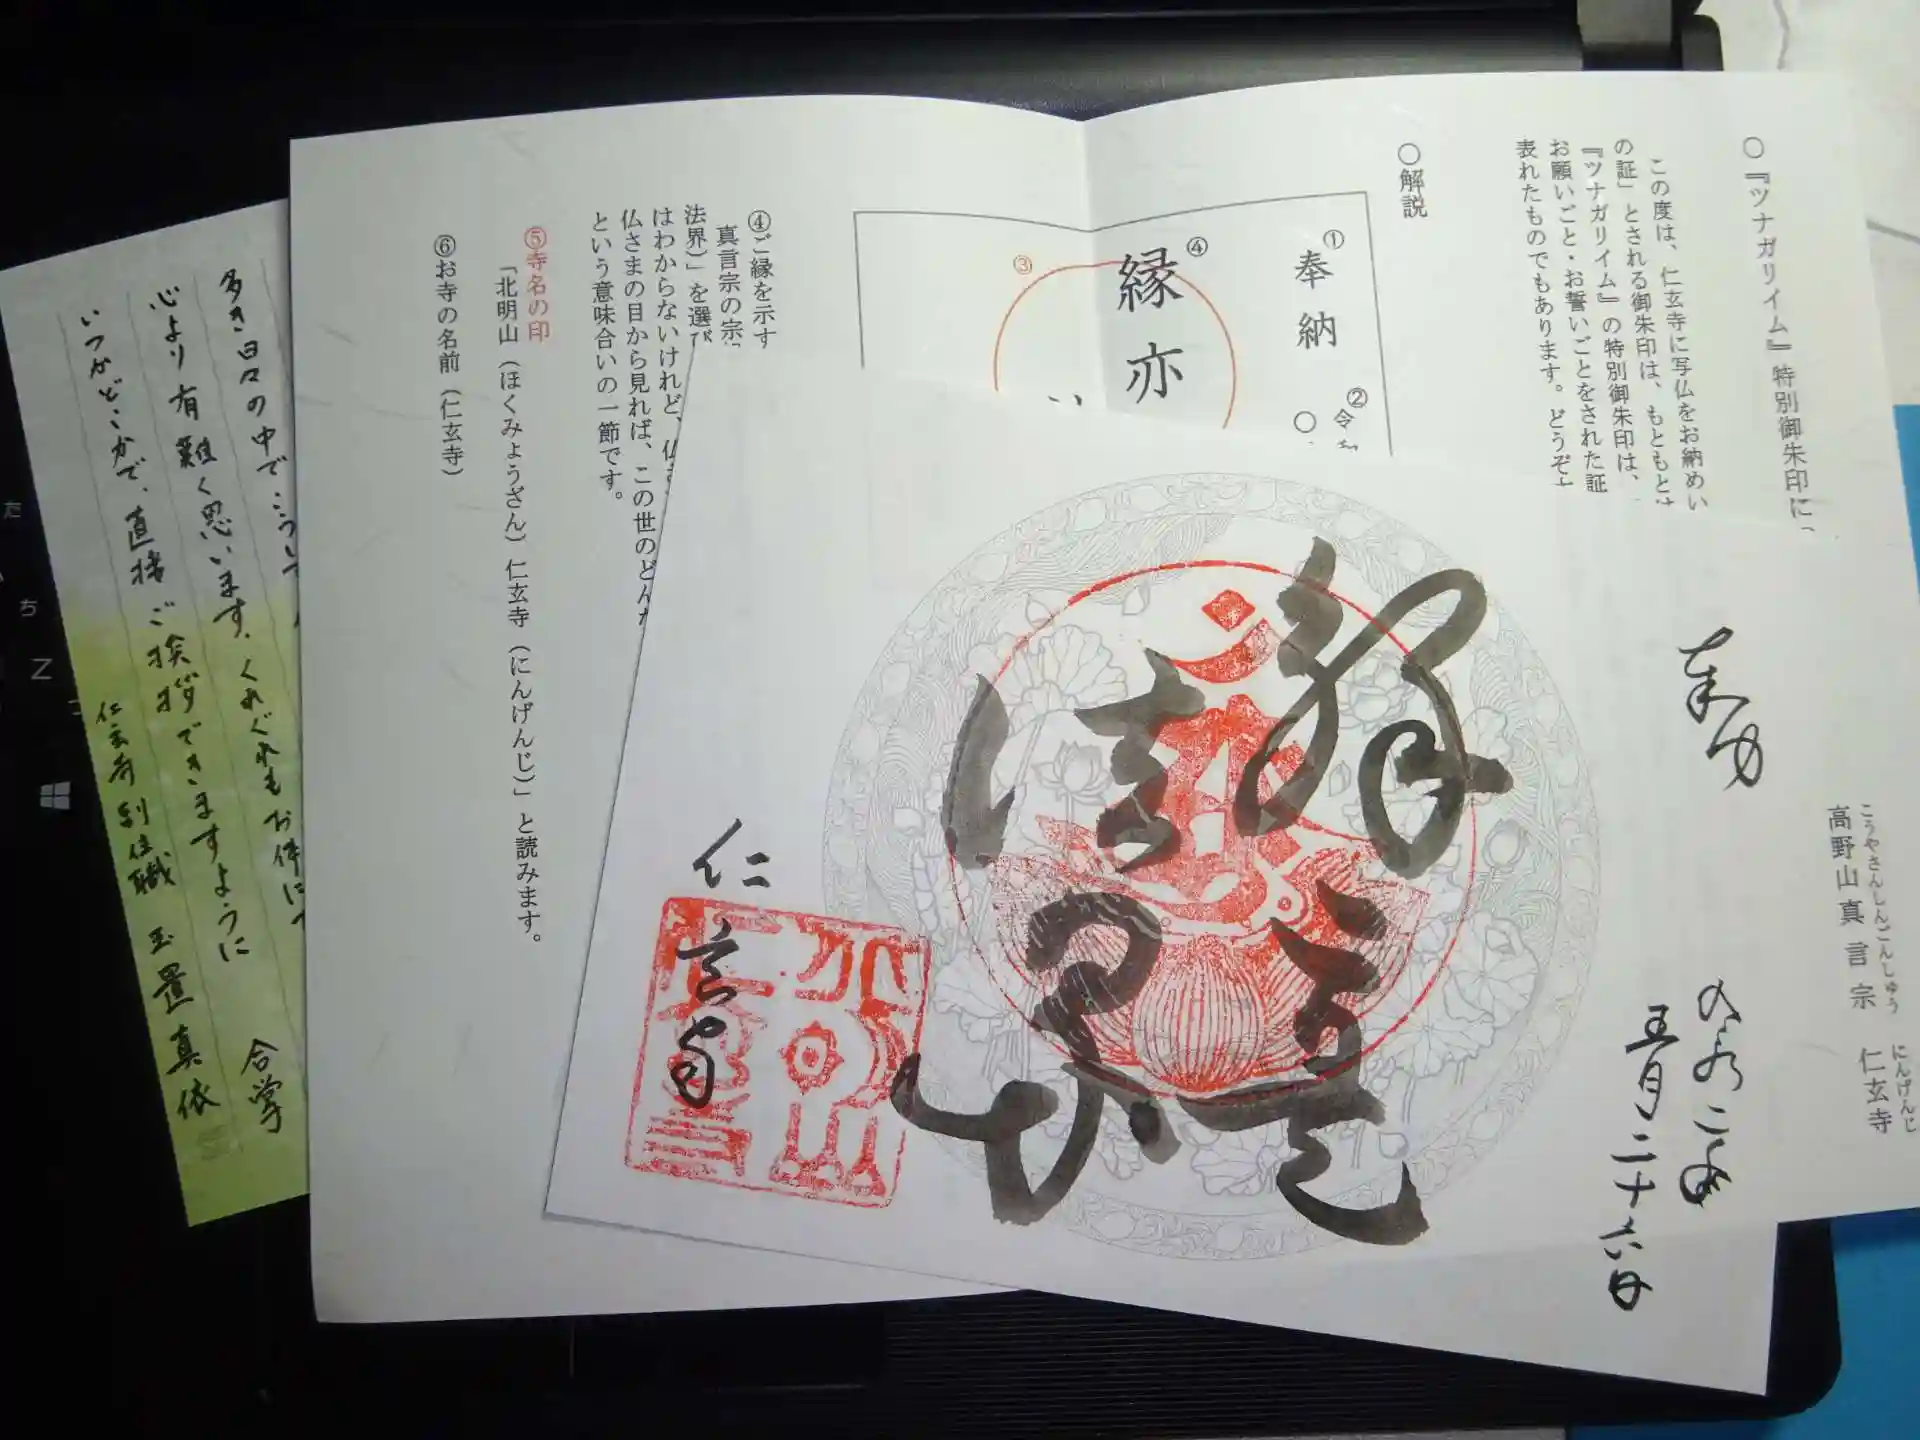 ○『ツナガリイム』特別御朱印に
この度は、仁玄寺に写仏をお納めい
の証」とされる御朱印は、もともとは
『ツナガリイム』の特別御朱印は、
お願いごと・お誓いごとをされた証
表れたものでもあります。どうぞ
○解説
①
奉納
②
令
○
④
縁亦
③
④ご縁を示す
真言宗の宗
法界）」を選び
はわからないけれど、仏さ
仏さまの目から見れば、この世のどんな
という意味合いの一節です。
⑤寺名の印
「北明山（ほくみょうざん）仁玄寺（にんげんじ）」と読みます。
⑥お寺の名前（仁玄寺）
こうやさんしんごんしゅう
高野山真言宗
にんげんじ
仁玄寺
奉納
令和二年
五月二十六日
縁亦
法界
仁玄寺
多き日々の中で、こうして
心より有難く思います。くれぐれもお体に
いつかどこかで、直接ご挨拶できますように
合掌
仁玄寺 副住職 玉置真依
た
ち
Z